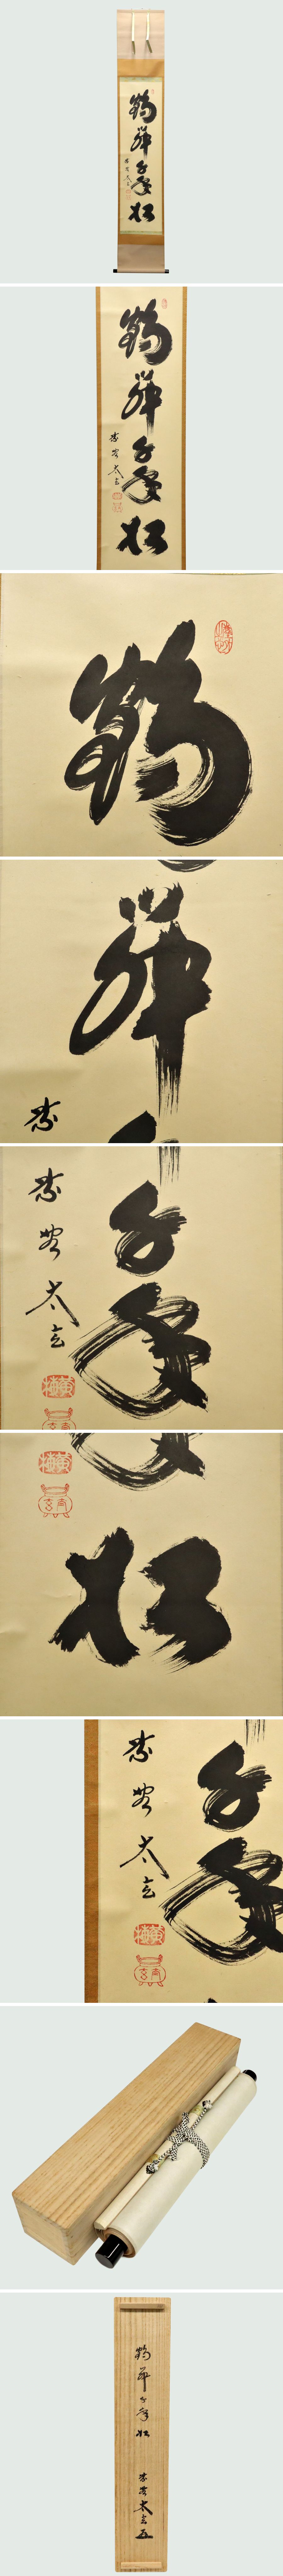 鶴舞千年松
紫野太玄
鶴舞千年松
紫野太玄
鶴
舞
紫
千年
紫野太玄
黄梅
松
黄梅
千年
紫野太玄
黄梅
鶴舞千年松
紫野太玄